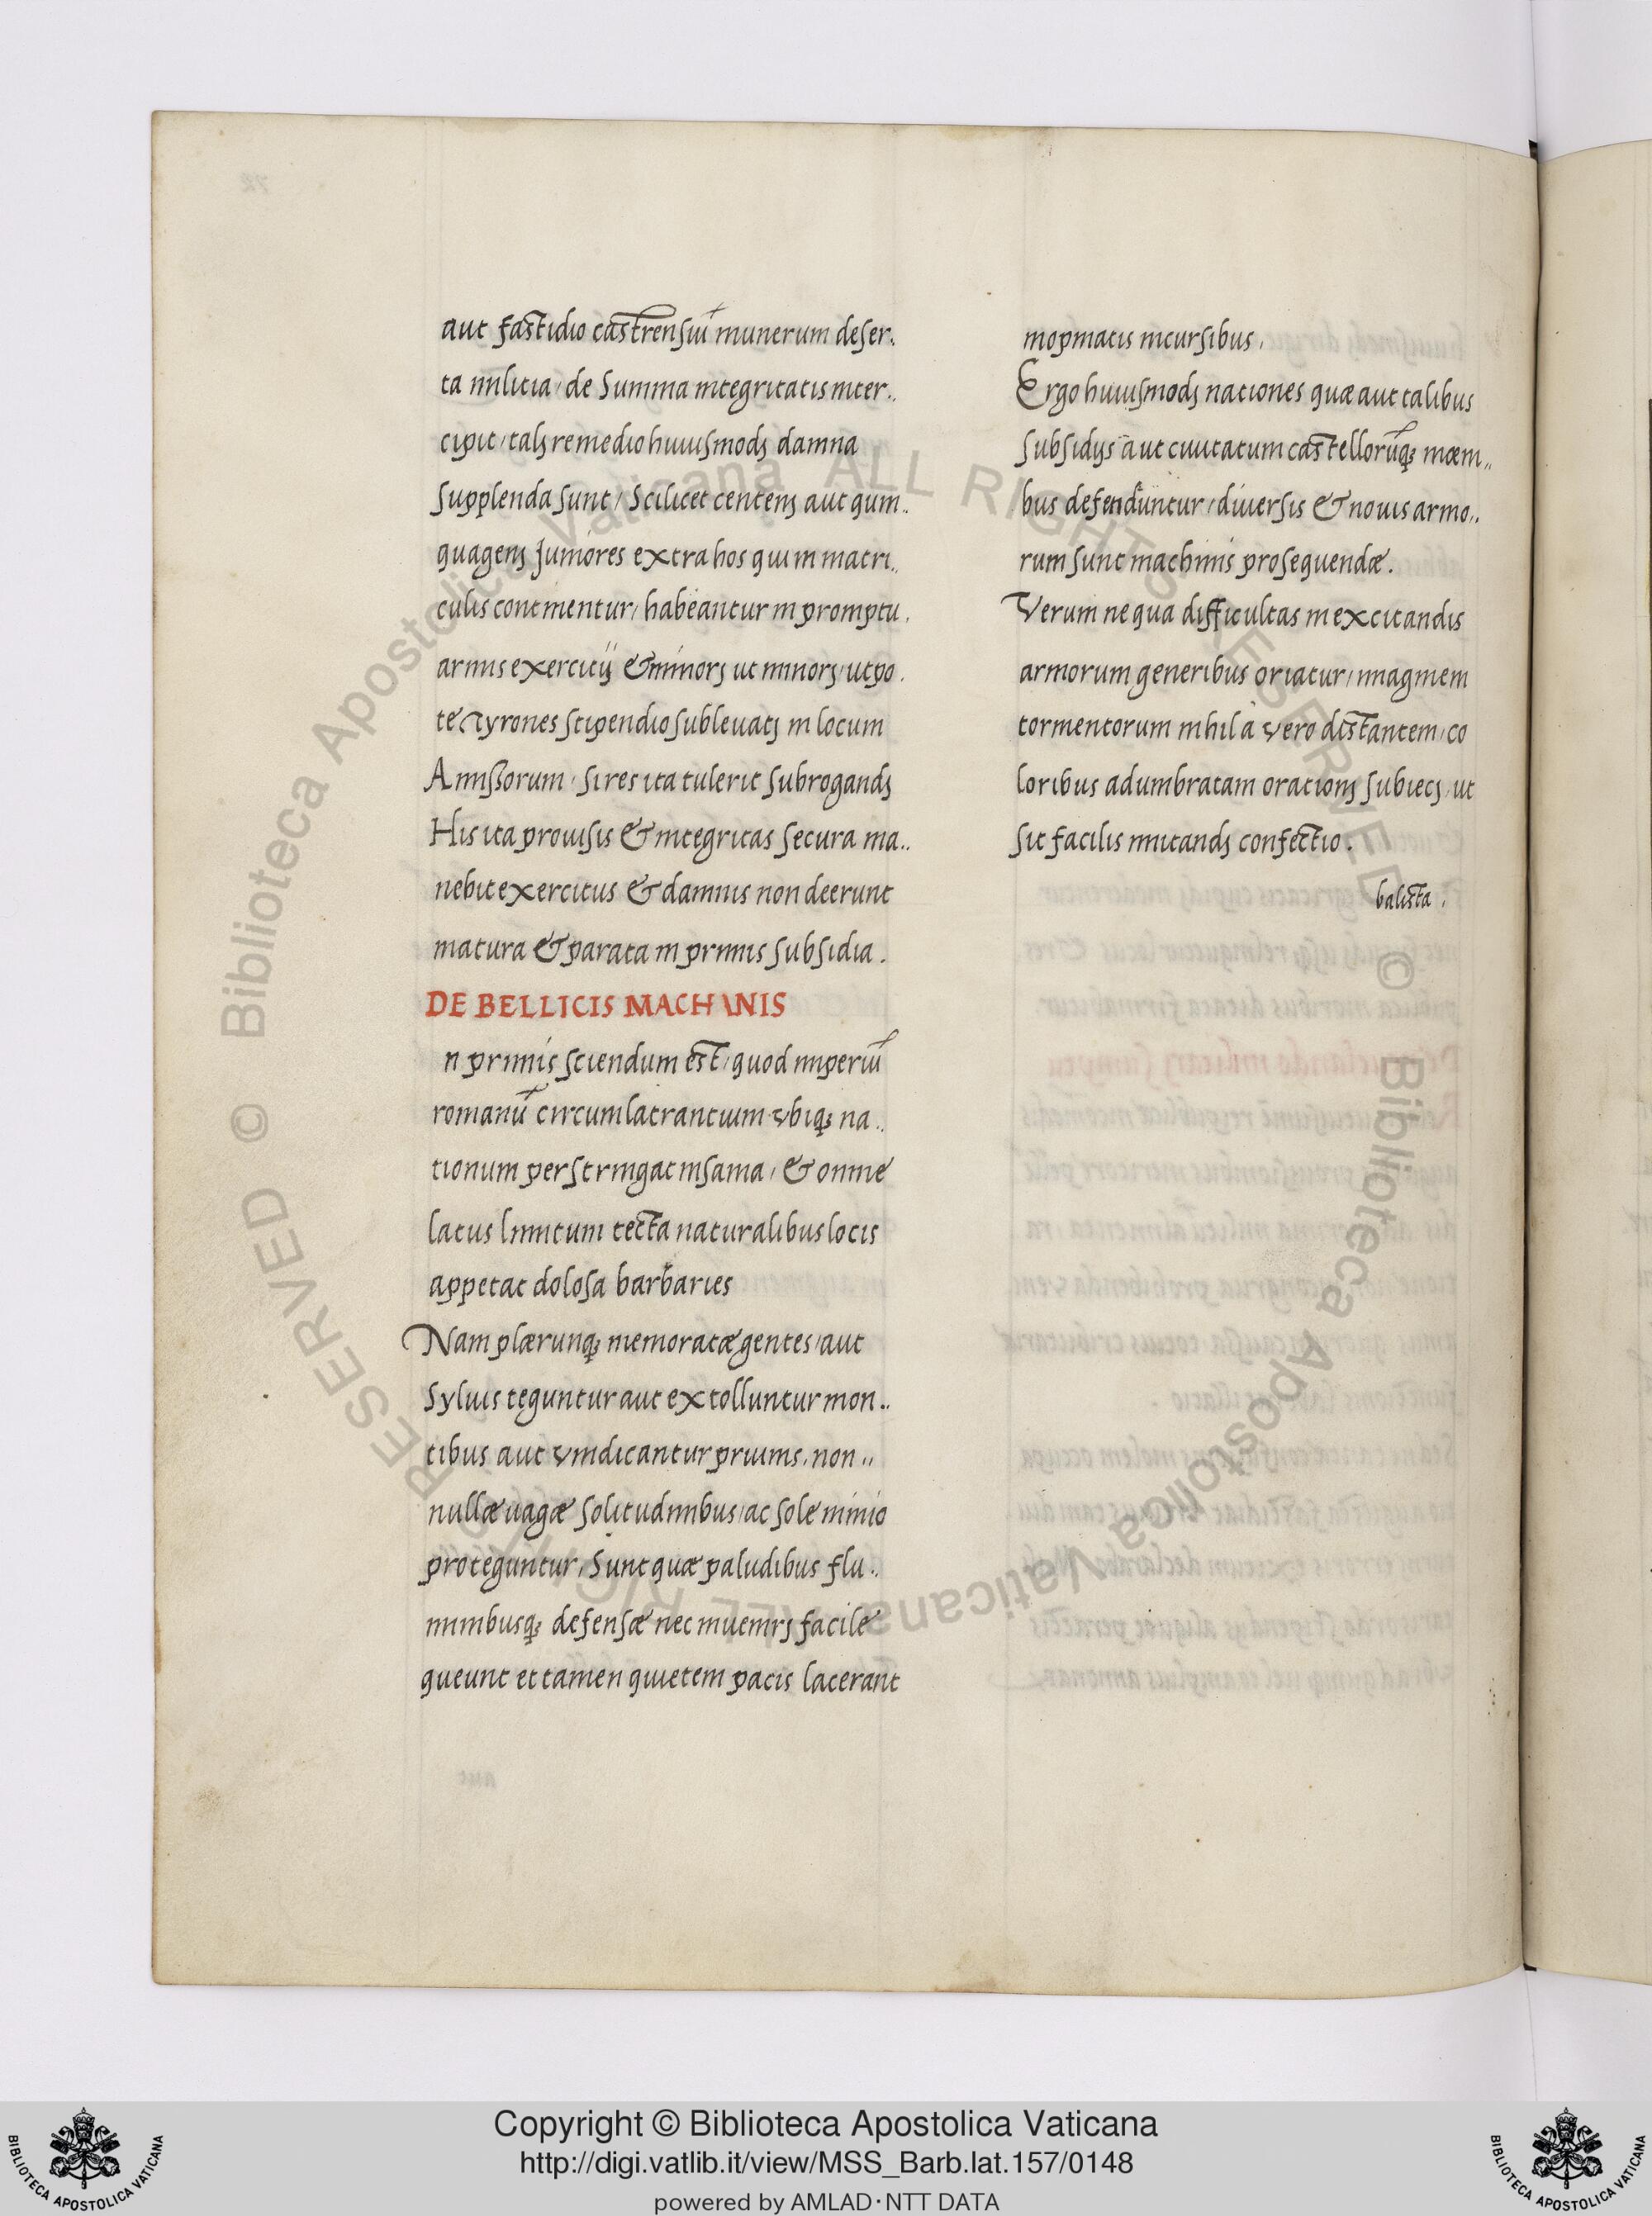 aut fastidio castrensiū munerum deser.
ta militia, de Summa integritatis inter..
cipit, talj remedio huiusmodj damna
supplenda sunt, Scilicet centenj aut quin..
quagenj juniores extra hos qui in matri..
culis continentur, habeantur in promptu.
armis exercitij & minorj ut minorj, utpo.
te Tyrones stipendio subleuatj in locum
Amissorum, si res ita tulerit subrogandj
His ita prouisis & integritas Secura ma..
nebit exercitus & damnis non deerunt
matura & parata in primis subsidia.
DE BELLICIS MACHINIS
n primis sciendum est, quod imperiū
romanū circumlatrantium vbiq; na..
tionum perstringat insania, & omne
latus limitum tecta naturalibus locis
appetat dolosa barbaries
Nam plærunq; memoratæ gentes, aut
Syluis teguntur aut extolluntur mon..
tibus aut vindicantur pruinis, non..
nullæ uagæ solitudinibus, ac sole nimio
proteguntur, Sunt quæ paludibus flu..
minibusq; defensæ nec inuenirj facile
queunt et tamen quietem pacis lacerant
inopinatis incursibus,
Ergo huiusmodj nationes quæ aut talibus
subsidijs aut ciuitatum castellorūq; mœni..
bus defenduntur, diuersis & nouis armo..
rum sunt machinis prosequendæ.
Verum ne qua difficultas in excitandis
armorum generibus oriatur, imaginem
tormentorum nihil à vero distantem, co
loribus adumbratam orationj subiecj, ut
sit facilis imitandj confectio.
balista.
Copyright © Biblioteca Apostolica Vaticana
http://digi.vatlib.it/view/MSS_Barb.lat.157/0148
powered by AMLAD·NTT DATA